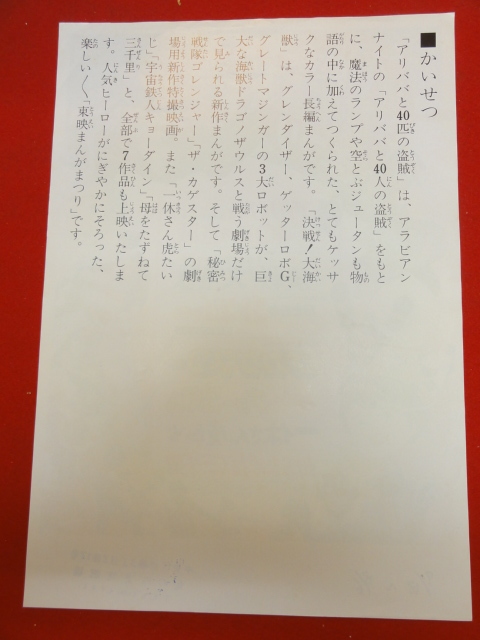 ■かいせつ
「アリババと40匹の盗賊」は、アラビアン
ナイトの「アリババと40人の盗賊」をもと
に、魔法のランプや空とぶジュータンも物
語の中に加えてつくられた、とてもケッサ
クなカラー長編まんがです。「決戦!大海
獣」は、グレンダイザー、ゲッターロボG、
グレートマジンガーの3大ロボットが、巨
大な海獣ドラゴノザウルスと戦う劇場だけ
で見られる新作まんがです。そして「秘密
戦隊ゴレンジャー」「ザ・カゲスター」の劇
場用新作特撮映画。また「一休さん虎たい
じ」「宇宙鉄人キョーダイン」「母をたずねて
三千里」と、全部で7作品も上映いたしま
す。人気ヒーローがにぎやかにそろった、
楽しい〱「東映まんがまつり」です。